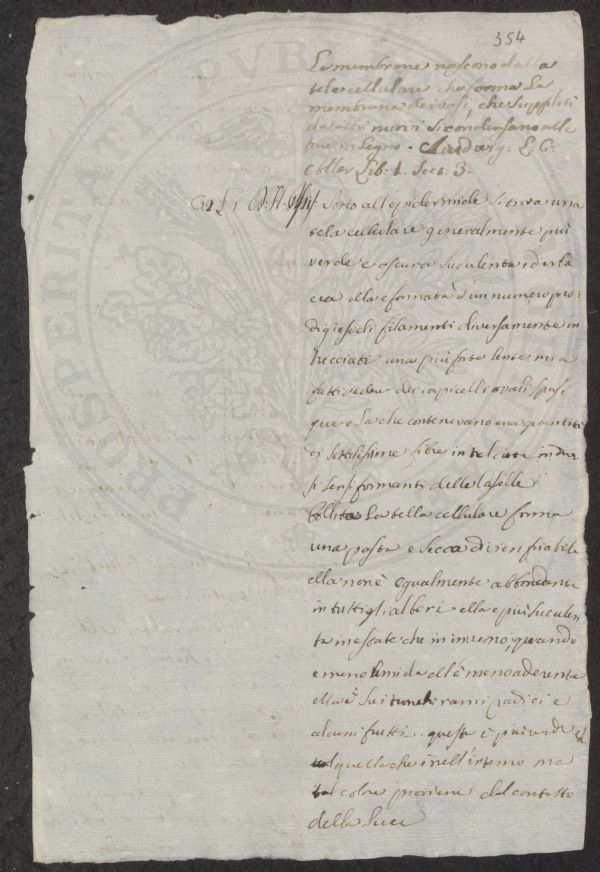 354
Le membrane nascono dalla
tela cellulare che forma La
membrana dei vasi, che suppliti
da altri nuovi si condensano alle
fine in Legno. Ludwig: L. C.
Coller Lib. 1. Sect. 3.
Sotto all'epidermide si trova una
tela cellulare generalmente piu
verde e oscura suculenta ed erba
cea ella e formata d'un numero pro
digioso di filamenti diversamente in
trecciati una piu forte lente mi a
fatti vedere dei corpicelli ovali sparsi
qua e La che contenevano una quantita
di sottilissime fibre intralciate in diver
si sensi formanti delle Caselle
La tella cellulare forma
una pasta e secca divien friabile
ella non è egualmente abbondante
in tutti gli alberi ella e piu suculen
ta in estate che in inverno, quando
e meno umida ell'è meno aderente
ella è sui rami radici e
alcuni frutti. questa è piu verde di
quella che è nell'interno ma
tal colore proviene dal contatto
della Luce
PROSPERITATI PVBLI